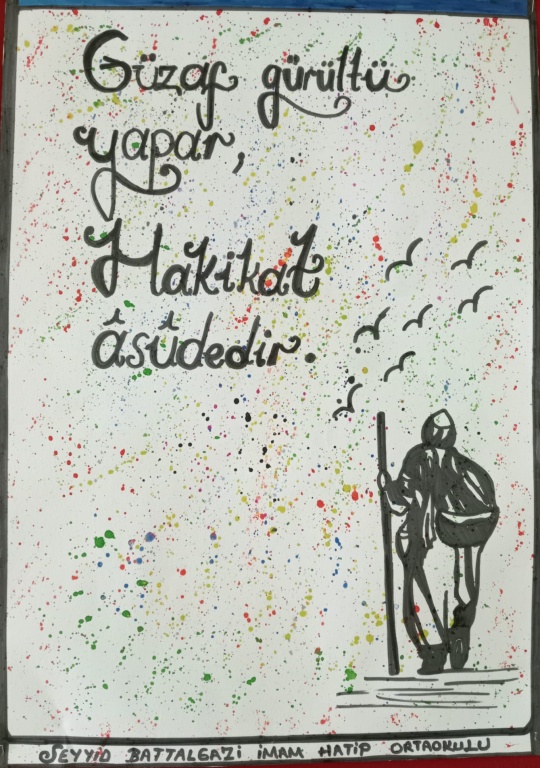 Güzaf gürültü
yapar,
Hakikat
âsûdedir.
SEYYİD BATTALGAZİ İMAM HATİP ORTAOKULU